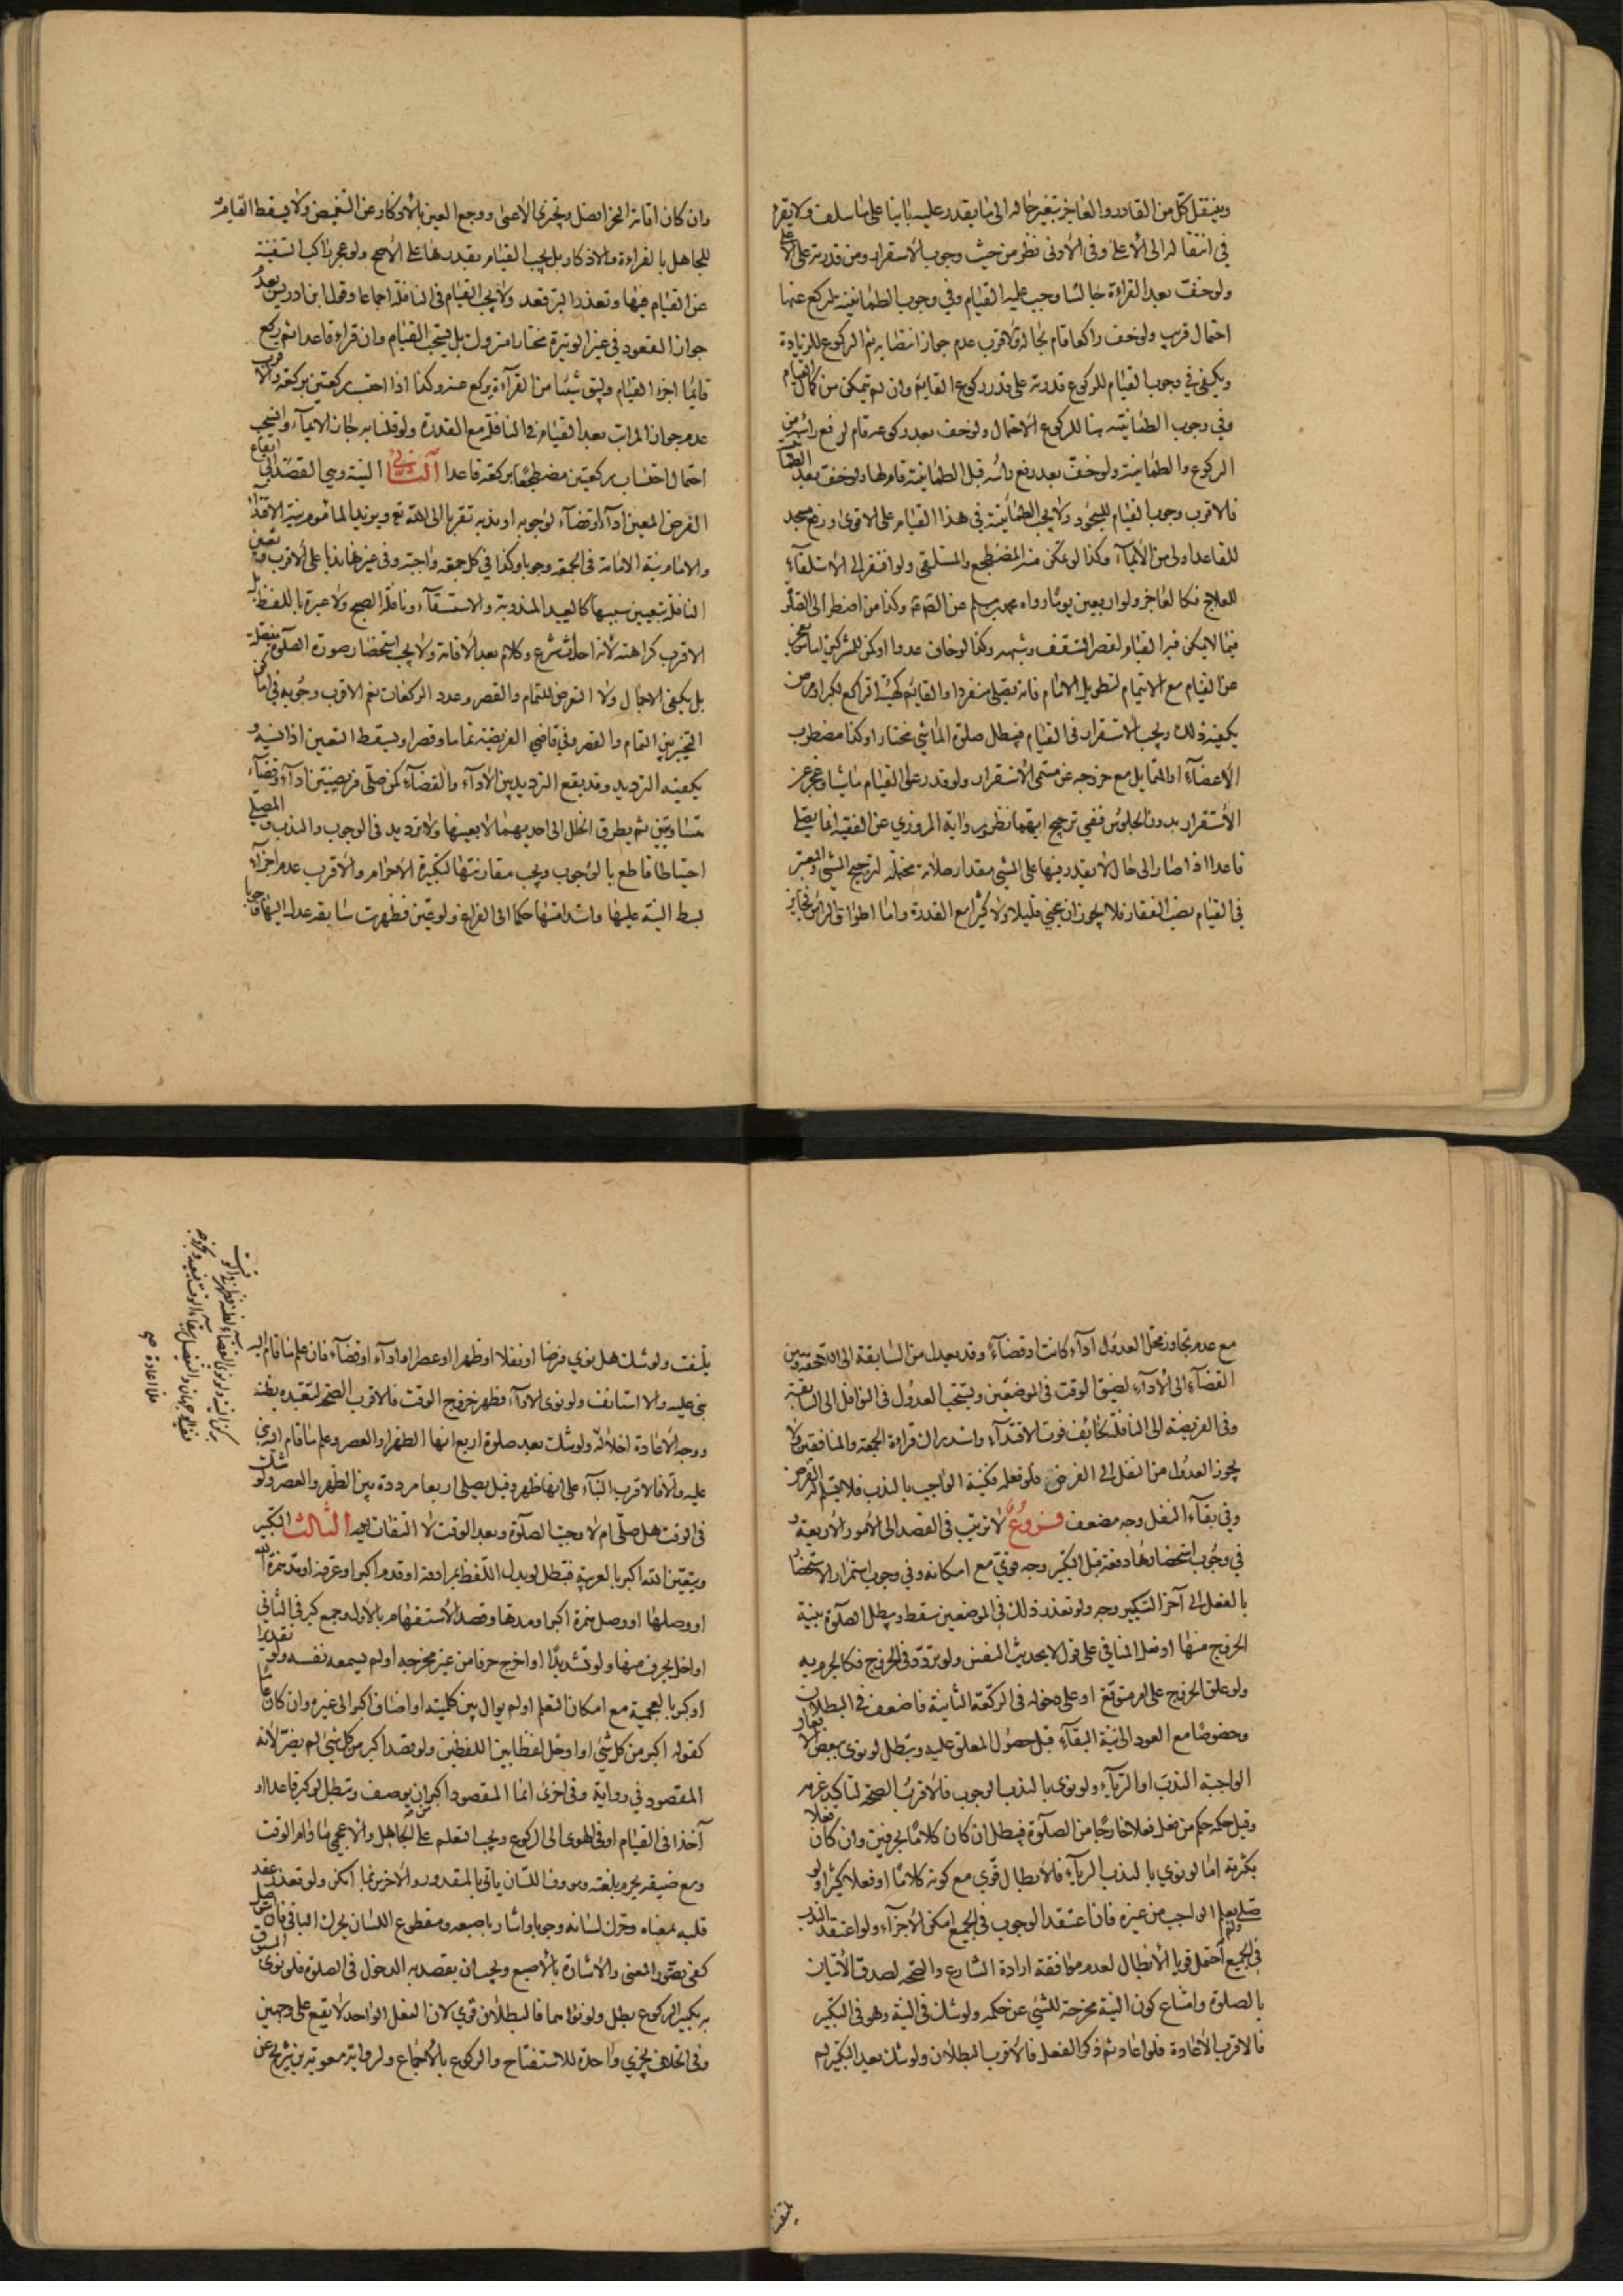 وينتقل كل من القادر والعاجز بتغير حاله الى ما يقدر عليه بانيا على ما سلف ولا يقرء
في انتقاله الى الاعلى وفي الادنى نظر من حيث وجوب الاستقرار ومن قدرته على الاعلى
ولو خفت بعد القراءة جالسا وجب عليه القيام وفي وجوب الطمانينة ليركع عنها
احتمال قريب ولو خف راكعا قام بحاله والاقرب عدم جواز انتصابه ثم الركوع للزيادة
ويكفي في وجوب القيام للركوع قدرته على قدر ركوع القايم وان لم يتمكن من كمال القيام
وفي وجوب الطمانينة هنا للركوع الاحتمال ولو خف بعد ركوعه قام لرفع راسه من
الركوع والطمانينة ولو خف بعد رفع رأسه قبل الطمانينة قام لها ولو خفت بعد الطمأ
فالاقرب وجوب القيام للسجود ولا يجب الطمانينة في هذا القيام على الاقوى ورفع مسجد
للقاعد اولى من الايماء وكذا لو تمكن منه المضطجع والمستلقي ولو افتقر الى الاستلقاء
للعلاج فكالعاجز ولو اربعين يوما رواه محمد بن مسلم عن الصادق وكذا من اضطر الى الصلوة
فيما لا يمكن فيه القيام لقصر السقف وشبهه وكذا لو خاف عدوا او كمن للمشركين اما من عجز
عن القيام مع الايتمام لتطويل الامام فانه يصلي منفردا والقايم كهيئة الراكع لكبر او مرض
يكفيه ذلك ويجب الاستقرار في القيام فيبطل صلوة الماشي مختارا وكذا مضطرب
الاعضاء او المتمايل مع خروجه عن مسمى الاستقرار ولو قدر على القيام ماشيا وعجز عن
الاستقرار بدونه الجلوس ففي ترجيح ايهما نظر ورواية المروزي عن الفقيه انما يصلي
قاعدا اذا صار الى حال لا يقدر فيها على المشي مقدار صلاته محتملة لترجيح المشي والمعتبر
في القيام نصب الفقار فلا يجوز ان ينحني قليلا ولا كثيرا مع القدرة واما اطراق الراس فجايز
وان كان اقامة النحر افضل ويجزي الاعمى ووجع العين بالاذكار عن التغميض ولا يسقط القيام
للجاهل بالقراءة والاذكار بل يجب القيام بقدرها على الاصح ولو عجز راكب السفينة
عن القيام فيها وتعذر البر قعد ولا يجب القيام في النافلة اجماعا وقول ابن ادريس بعدم
جواز القعود في غير الوتيرة مختارا متروك بل يستحب القيام وان قراء قاعدا ثم ركع
قايما اجزء القيام ويبق شيئا من القراءة يركع عنه وكذا اذا احتسب ركعتين بركعة والاقرب
عدم جواز المراتب بعد القيام في النافلة مع القدرة ولو قلنا به جاز الايماء وانسحب
احتمال احتساب ركعتين مضطجعا بركعة قاعدا الثاني النية وهي القصد الى ايقاع
الفرض المعين اداء او قضاء لوجوبه او ندبه تقربا الى الله تع ويزيد الماموم نية الاقتداء
والامام نية الامامة في الجمعة وجوبا وكذا في كل جمعة واجبة وفي غيرها ندبا على الاقرب وتعين
النافلة بتعيين سببها كالعيد المندوبة والاستسقاء ونافلة الصبح ولا عبرة باللفظ بل
الاقرب كراهته لانه احداث شرع وكلام بعد الاقامة ولا يجب استحضار صورة الصلوة مفصلة
بل يكفي الاجمال ولا التعرض للتمام والقصر وعدد الركعات نعم الاقرب وجوبه في اماكن
التخيير بين التمام والقصر وفي قاضي الفريضة تماما وقصرا ويسقط التعيين اذا نسيه و
يكفيه الترديد وقد يقع الترديد بين الاداء والقضاء كمن صلى فريضتين اداء وقضاء
متساويتين ثم يطرق الخلل الى احديهما لا بعينها ولا ترديد في الوجوب والندب والمصلي
احتياطا قاطع بالوجوب ويجب مقارنتها لتكبيرة الاحرام والاقرب عدم اجزاء
بسط النية عليها واستدامتها حكما الى الفراغ ولو عين فظهرت سابقة عدل اليها وجوبا
مع عدم تجاوز محل العدول اداء كانت او قضاء وقد يعدل من السابقة الى اللاحقة ومن
القضاء الى الاداء لضيق الوقت في الموضعين ويستحب العدول في النوافل الى السابقة
وفي الفريضة الى النافلة لخايف فوت الاقتداء واستدراك قراءة الجمعة والمنافقين ولا
يجوز العدول من النفل الى الفرض فلو فعله فكنية الواجب بالندب فلا يسلم له الفرض
وفي بقاء النفل وجه مضعف فروع لا ترتيب في القصد الى الامور الاربعة و
في وجوب استحضارها دفعة قبل التكبير وجه قوي مع امكانه وفي وجوب استمرار الاستحضار
بالفعل الى آخر التكبير وجه ولو تعذر ذلك في الموضعين سقط ويبطل الصلوة بنية
الخروج منها او فعل المنافي على قول لا بحديث النفس ولو تردد في الخروج فكالجزم به
ولو علق الخروج على امر متوقع او على دخوله في الركعة الثانية فاضعف في البطلان
وخصوصا مع العود الى نية البقاء قبل حصول المعلق عليه ويبطل لو نوى ببعض الافعال
الواجبة الندب او الرياء ولو نوى بالندب الوجوب فالاقرب الصحة لتاكيد عزمه
وقيل حكمه حكم من فعل فعلا خارجا من الصلوة فيبطل ان كان كلاما بحرفين وان كان فعلا
بكثرته اما لو نوى بالندب الرياء فالابطال قوي مع كونه كلاما او فعلا كثيرا ولو
صلى ولم يعلم الواجب من غيره فان اعتقد الوجوب في الجميع امكن الاجزاء ولو اعتقد الندب
في الجميع احتمل قويا الابطال لعدم موافقة ارادة الشارع والصحة لصدق الاتيان
بالصلوة وامتناع كون النية مخرجة للشيء عن حكمه ولو شك في النية وهو في التكبير
فالاقرب الاعادة فلو اعاد ثم ذكر الفعل فالاقرب البطلان ولو شك بعد التكبير لم
يلتفت
يلتفت ولو شك هل نوى فرضا او نفلا او ظهرا او عصرا او اداء او قضاء فان علم ما قام اليه
بنى عليه والا استانف ولو نوى الاداء فظهر خروج الوقت فالاقرب الصحة لتعبده بظنه
ووجه الاعادة اخلاله ولو شك بعد صلوة اربع انها الظهر او العصر وعلم ما قام اليه بنى
عليه والا فالاقرب البناء على انها ظهر وقيل يصلي اربعا مرددة بين الظهر والعصر ولو شك
في الوقت هل صلى ام لا وجبت الصلوة وبعد الوقت لا التفات اليه الثالث التكبير
ويتعين الله اكبر بالعربية فتبطل لو بدل اللفظ بمرادفه او قدم اكبر او عرفه او مد همزة الله
او وصلها او وصل همزة اكبر او مدها وقصد الاستفهام بالاول وجمع كبر في الثاني
او اخل بحرف منها ولو تشديدا او اخرج حرفا من غير مخرجه او لم يسمعه نفسه ولو تقديرا
او كبر بالعجمية مع امكان التعلم او لم يوال بين كلمتيه او اضاف اكبر الى غيره وان كان عاما
كقوله اكبر من كل شيء او ادخل لفظا بين اللفظين ولو قصد اكبر من كل شيء لم يضر لانه
المقصود في رواية وفي اخرى انما المقصود اكبر من ان يوصف وتبطل لو كبر قاعدا او
آخذا في القيام او في الهوى الى الركوع ويجب التعلم على الجاهل والاعجمي ما دام الوقت
ومع ضيقه يحرم بلغته وموف اللسان ياتي بالمقدور والاخرس بما امكن ولو تعذر عقد
قلبه بمعناه وحرك لسانه وجوبا واشار باصبعه ومقطوع اللسان يحرك الباقي فان عن اصل
كفى تصور المعنى والاشارة بالاصبع ويجب ان يقصد به الدخول في الصلوة فلو نوى المسبوق
به تكبير الركوع بطل ولو نواهما فالبطلان قوي لان الفعل الواحد لا يقع على وجهين
وفي الخلاف يجزي واحدة للاستفتاح والركوع بالاجماع ولرواية معوية بن شريح عن
فلا اعادة صح